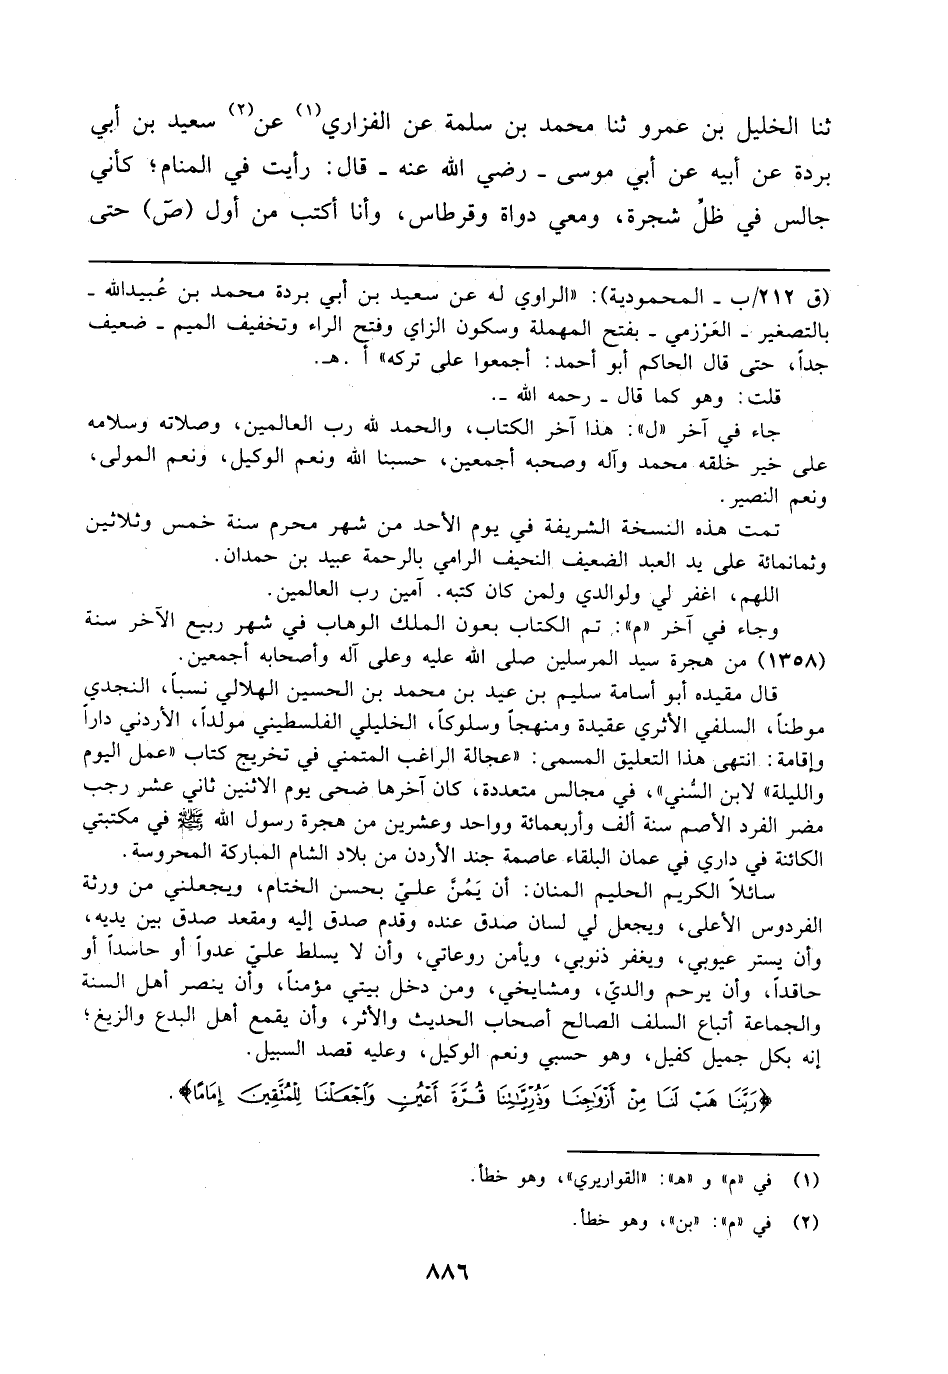 ثنا الخليل بن عمرو ثنا محمد بن سلمة عن الفزاري(١) عن(٢) سعيد بن أبي
بردة عن أبيه عن أبي موسى ـ رضي الله عنه ـ قال: رأيت في المنام؛ كأني
جالس في ظلِّ شجرة، ومعي دواة وقرطاس، وأنا أكتب من أول (صَ) حتى
(ق ٢١٢/ب ـ المحمودية): «الراوي له عن سعيد بن أبي بردة محمد بن عُبيدالله ـ
بالتصغير ـ العَرْزمي ـ بفتح المهملة وسكون الزاي وفتح الراء وتخفيف الميم ـ ضعيف
جداً، حتى قال الحاكم أبو أحمد: أجمعوا على تركه» أ .هـ.
قلت: وهو كما قال ـ رحمه الله ـ.
جاء في آخر «ل»: هذا آخر الكتاب، والحمد لله رب العالمين، وصلاته وسلامه
على خير خلقه محمد وآله وصحبه أجمعين، حسبنا الله ونعم الوكيل، ونعم المولى،
ونعم النصير.
تمت هذه النسخة الشريفة في يوم الأحد من شهر محرم سنة خمس وثلاثين
وثمانمائة على يد العبد الضعيف النحيف الرامي بالرحمة عبيد بن حمدان.
اللهم، اغفر لي ولوالدي ولمن كان كتبه. آمين رب العالمين.
وجاء في آخر «م»: تم الكتاب بعون الملك الوهاب في شهر ربيع الآخر سنة
(١٣٥٨) من هجرة سيد المرسلين صلى الله عليه وعلى آله وأصحابه أجمعين.
قال مقيده أبو أسامة سليم بن عيد بن محمد بن الحسين الهلالي نسباً، النجدي
موطناً، السلفي الأثري عقيدة ومنهجاً وسلوكاً، الخليلي الفلسطيني مولداً، الأردني داراً
وإقامة: انتهى هذا التعليق المسمى: «عجالة الراغب المتمني في تخريج كتاب «عمل اليوم
والليلة» لابن السُّني»، في مجالس متعددة، كان آخرها ضحى يوم الاثنين ثاني عشر رجب
مضر الفرد الأصم سنة ألف وأربعمائة وواحد وعشرين من هجرة رسول الله ﷺ في مكتبتي
الكائنة في داري في عمان البلقاء عاصمة جند الأردن من بلاد الشام المباركة المحروسة.
سائلاً الكريم الحليم المنان: أن يَمُنَّ عليّ بحسن الختام، ويجعلني من ورثة
الفردوس الأعلى، ويجعل لي لسان صدق عنده وقدم صدق إليه ومقعد صدق بين يديه،
وأن يستر عيوبي، ويغفر ذنوبي، ويأمن روعاتي، وأن لا يسلط عليّ عدواً أو حاسداً أو
حاقداً، وأن يرحم والديّ، ومشايخي، ومن دخل بيتي مؤمناً، وأن ينصر أهل السنة
والجماعة أتباع السلف الصالح أصحاب الحديث والأثر، وأن يقمع أهل البدع والزيغ؛
إنه بكل جميل كفيل، وهو حسبي ونعم الوكيل، وعليه قصد السبيل.
﴿رَبَّنَا هَبْ لَنَا مِنْ أَزْوَٰجِنَا وَذُرِّيَّٰتِنَا قُرَّةَ أَعْيُنٍ وَٱجْعَلْنَا لِلْمُتَّقِينَ إِمَامًا﴾.
(١) في «م» و «هـ»: «القواريري»، وهو خطأ.
(٢) في «م»: «بن»، وهو خطأ.
٨٨٦